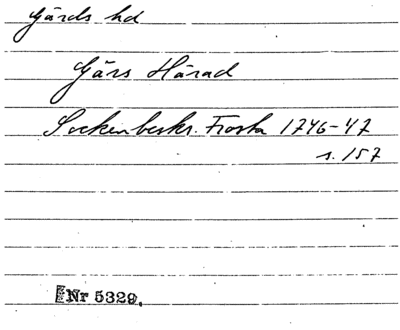 Gärds hd
Gärs Härad
Sockenbeskr. Frosta 1746-47
s. 157
Nr 5329.